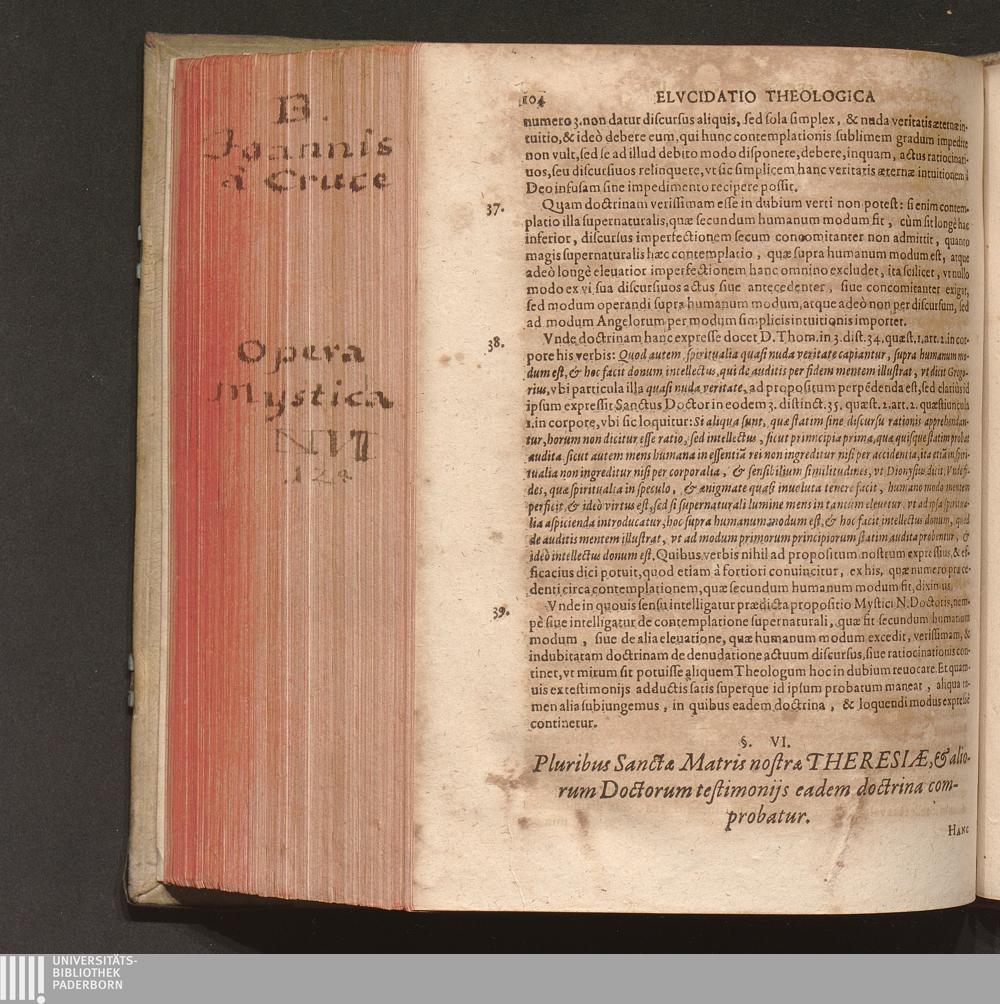 B.
Joannis
à Cruce
Opera
Mystica
NVI
124
104 ELVCIDATIO THEOLOGICA
numero 3. non datur discursus aliquis, sed sola simplex, & nuda veritatis æternæ in-
tuitio, & ideò debere eum, qui hunc contemplationis sublimem gradum impedire
non vult, sed se ad illud debito modo disponere, debere, inquam, actus ratiocinati-
uos, seu discursiuos relinquere, vt sic simplicem hanc veritatis æternæ intuitionem à
Deo infusam sine impedimento recipere possit.
37. Quam doctrinam verissimam esse in dubium verti non potest: si enim contem-
platio illa supernaturalis, quæ secundum humanum modum fit, cùm sit longè hac
inferior, discursus imperfectionem secum concomitanter non admittit, quanto
magis supernaturalis hæc contemplatio, quæ supra humanum modum est, atque
adeò longè eleuatior imperfectionem hanc omnino excludet, ita scilicet, vt nullo
modo ex vi sua discursiuos actus siue antecedenter, siue concomitanter exigat,
sed modum operandi supra humanum modum, atque adeò non per discursum, sed
ad modum Angelorum per modum simplicis intuitionis importet.
38. Vnde doctrinam hanc expresse docet D. Thom. in 3. dist. 34. quæst. 1. art. 2. in cor-
pore his verbis: Quod autem spiritualia quasi nuda veritate capiantur, supra humanum mo-
dum est, & hoc facit donum intellectus, qui de auditis per fidem mentem illustrat, vt dicit Grego-
rius, vbi particula illa quasi nuda veritate, ad propositum perpēdenda est, sed clariùs id
ipsum expressit Sanctus Doctor in eodem 3. distinct. 35. quæst. 2. art. 2. quæstiuncula
1. in corpore, vbi sic loquitur: Si aliqua sunt, quæ statim sine discursu rationis apprehendan-
tur, horum non dicitur esse ratio, sed intellectus, sicut principia prima, quæ quisque statim probat
audita. sicut autem mens humana in essentiā rei non ingreditur nisi per accidentia, ita etiā in spiri-
tualia non ingreditur nisi per corporalia, & sensibilium similitudines, vt Dionysius dicit, Vnde fi-
des, quæ spiritualia in speculo, & ænigmate quasi inuoluta tenere facit, humano modo mentem
perficit, & ideò virtus est, sed si supernaturali lumine mens in tantùm eleuetur, vt ad ipsa spiritua-
lia aspicienda introducatur, hoc supra humanum modum est, & hoc facit intellectus donum, quod
de auditis mentem illustrat, vt ad modum primorum principiorum statim audita probentur, &
ideò intellectus donum est. Quibus verbis nihil ad propositum nostrum expressius, & ef-
ficacius dici potuit, quod etiam à fortiori conuincitur, ex his, quæ numero præce-
denti circa contemplationem, quæ secundum humanum modum fit, diximus.
39. Vnde in quouis sensu intelligatur prædicta propositio Mystici N. Doctoris, nem-
pè siue intelligatur de contemplatione supernaturali, quæ fit secundum humanum
modum, siue de alia eleuatione, quæ humanum modum excedit, verissimam, &
indubitatam doctrinam de denudatione actuum discursus, siue ratiocinationis con-
tinet, vt mirum sit potuisse aliquem Theologum hoc in dubium reuocare. Et quam-
uis ex testimonijs adductis satis superque id ipsum probatum maneat, aliqua ta-
men alia subiungemus, in quibus eadem doctrina, & loquendi modus expressè
continetur.
§. VI.
Pluribus Sanctæ Matris nostræ THERESIÆ, & alio-
rum Doctorum testimonijs eadem doctrina com-
probatur.
HANC
UNIVERSITÄTS-
BIBLIOTHEK
PADERBORN